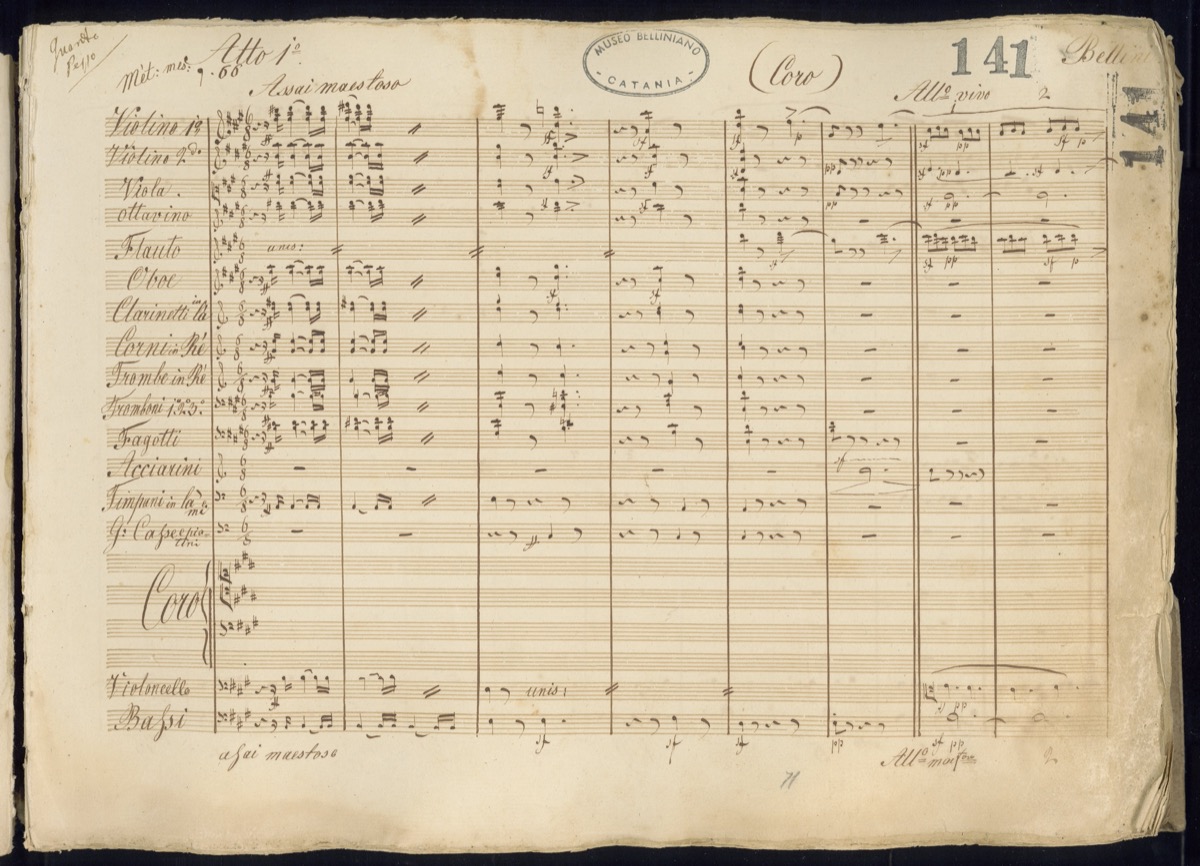 Atto 1º.
Bellini
Mèt: mes: 66
Assai maestoso
MUSEO BELLINIANO
- CATANIA -
(Coro)
141
141
Allº vivo
2
Violino 1º
Violino 2do
Viola.
Ottavino
Flauto
unis:
Oboe
Clarinetti in la
Corni in Ré
Trombe in Ré
Tromboni 1º 2º 3º
Fagotti
Acciarini
Timpani in la mi
Gr Casse e
Coro
Violoncello
unis:
Bassi
sf
pp
assai maestoso
Allº
2
71